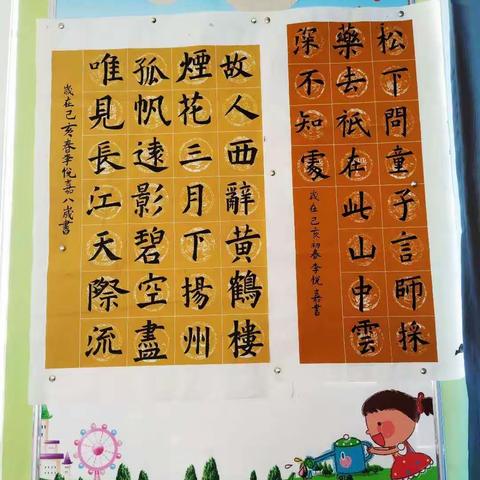 松下問童子言師採
藥去祇在此山中雲
深不知處
歲在己亥初春李悅嘉書
故人西辭黃鶴樓
煙花三月下揚州
孤帆遠影碧空盡
唯見長江天際流
歲在己亥春李悅嘉八歲書